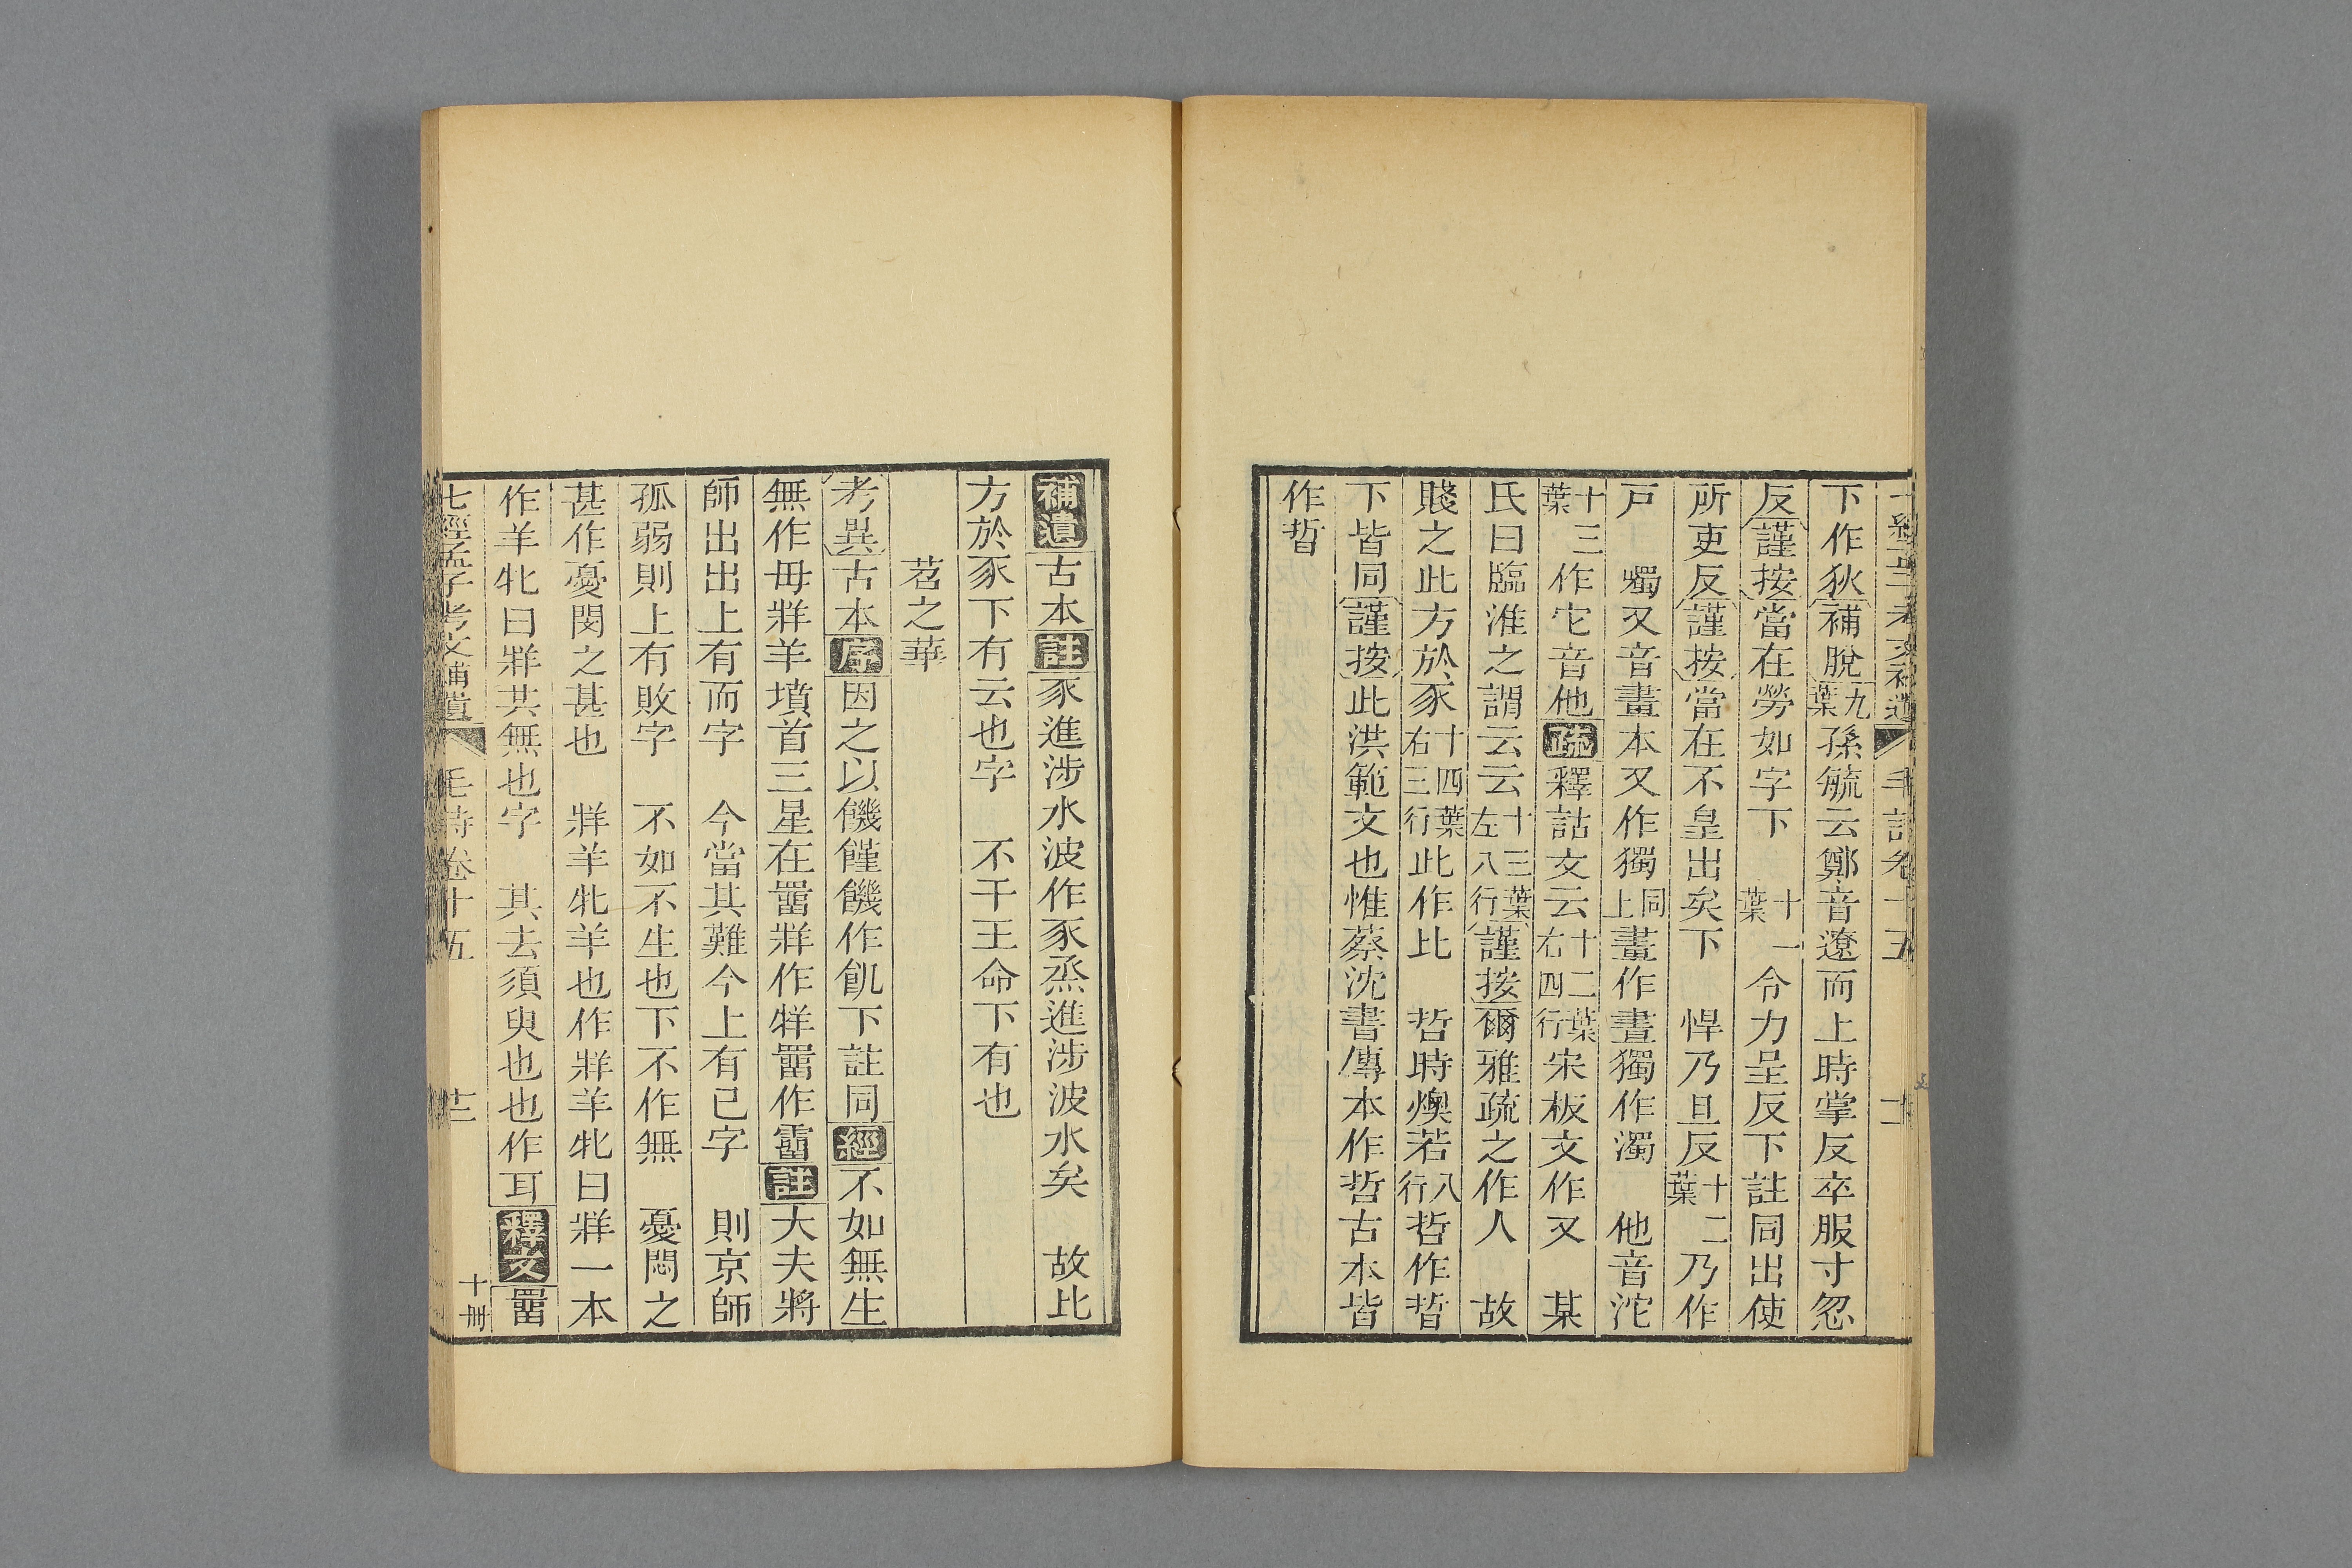 下作狄補脫九葉孫毓云鄭音遼而上時掌反卒服寸忽
反謹按當在勞如字下 十一葉令力呈反下註同出使
所吏反謹按當在不皇出矣下 悍乃旦反十二葉乃作
戸 燭又音畫本又作獨同上畫作晝獨作濁 他音沱
十三葉作它音他疏釋詁文云十二葉右四行宋板文作又 某
氏曰臨淮之謂云云十三葉左八行謹按爾雅疏之作人 故
賤之此方於豕十四葉右三行此作比 哲時燠若八行哲作晢
下皆同謹按此洪範文也惟蔡沈書傳本作哲古本皆
作晢
七經孟子考文補遺 毛詩卷十五
補遺古本註豕進涉水波作豕烝進涉波水矣 故比
方於豕下有云也字 不干王命下有也
苕之華
考異古本序因之以饑饉饑作飢下註同經不如無生
無作毋牂羊墳首三星在罶牂作牪罶作霤註大夫將
師出出上有而字 今當其難今上有已字 則京師
孤弱則上有敗字 不如不生也下不作無 憂悶之
甚作憂閔之甚也 牂羊牝羊也作牂羊牝曰牂一本
作羊牝曰牂共無也字 其去須臾也也作耳釋文罶
七經孟子考文補遺 毛詩卷十五 十二 十冊